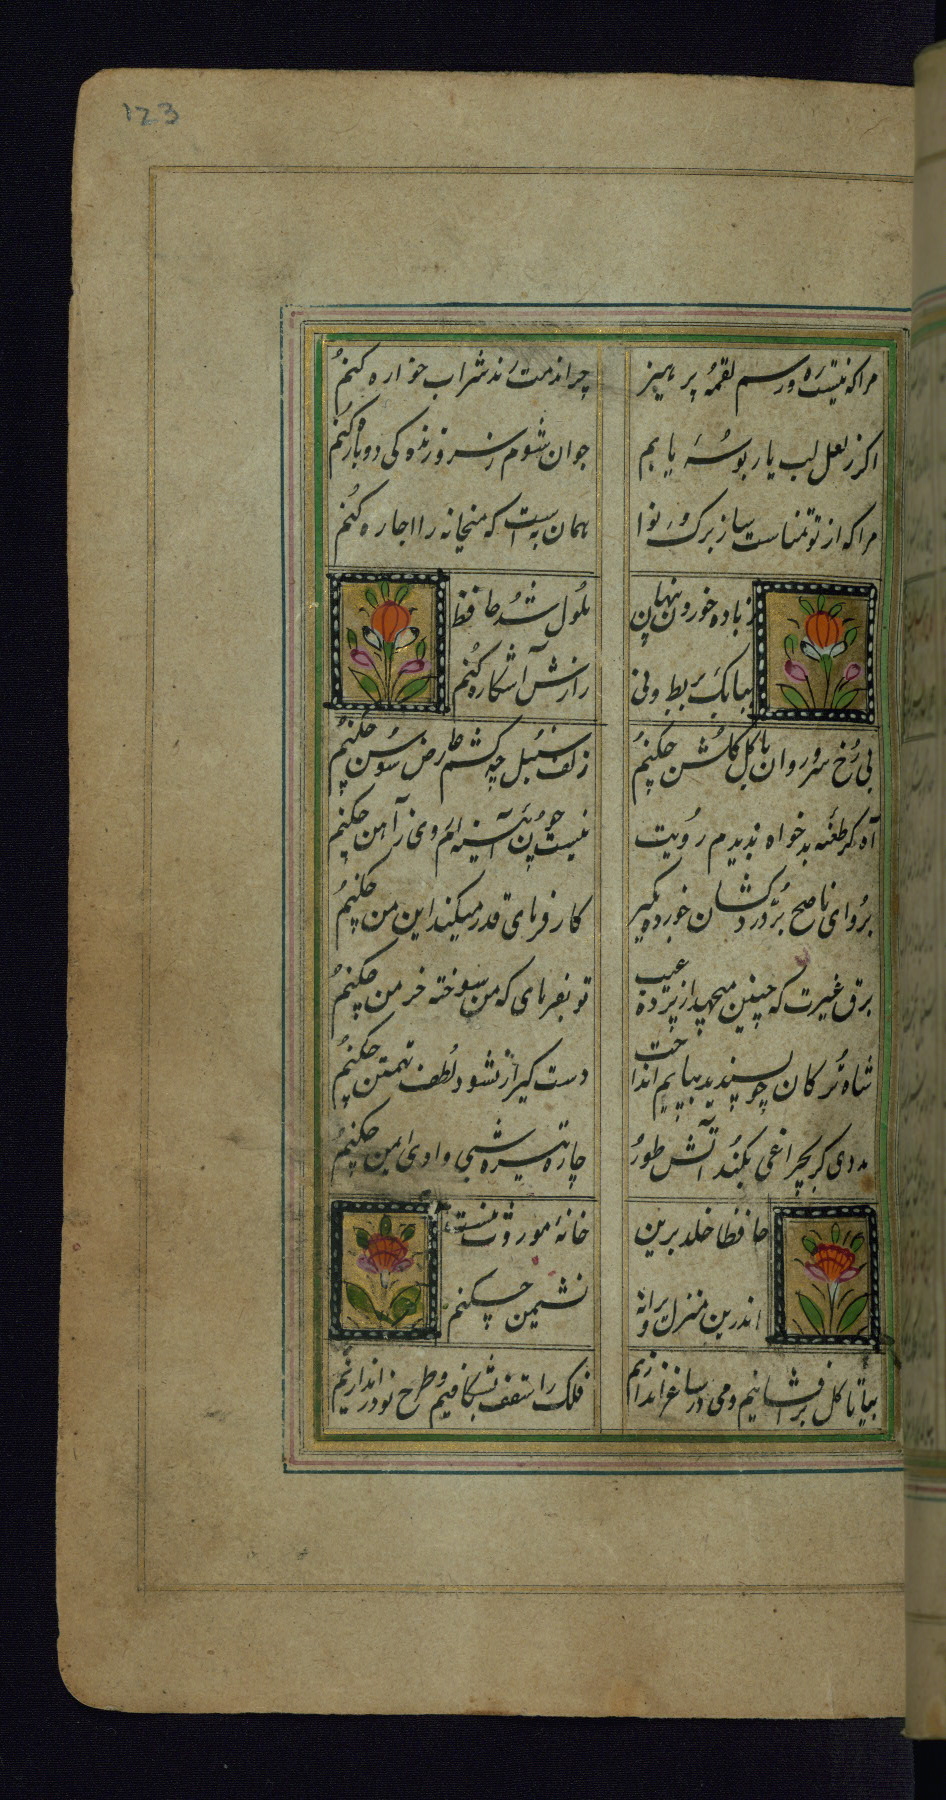 123
مرا که نیست ره و رسم لقمهٔ پرهیز
چرا مذمت رند شراب خواره کنم
اگر ز لعل لب یار بوسهٔ یابم
جوان شوم ز سر و زندگی دوباره کنم
مرا که از تو تمناست ساز برک و نوا
همان به است که میخانه را اجاره کنم
ز باده خوردن پنهان
ملول شد حافظ
ببانک بربط و نی
رازش آشکاره کنم
بی رخ سرو روان با گل گلشن چکنم
زلف سنبل چه کشم عارض سوسن چکنم
آه کز طعنه بدخواه ندیدم رویت
نیست چون آینه ام روی ز آهن چکنم
برو ای ناصح بر دردکشان خورده مگیر
کار فرمای قدر میکند این من چکنم
برق غیرت که چنین میجهد از پردهٔ غیب
تو بفرمای که من سوخته خرمن چکنم
شاه ترکان چو پسندید بچاهم انداخت
دست گیر ار نشود لطف تهمتن چکنم
مددی گر بچراغی نکند آتش طور
چاره تیره شبی وادی ایمن چکنم
حافظا خلد برین
خانهٔ موروث منست
اندرین منزل ویرانه
نشیمن چکنم
بیا تا گل برافشانیم و می در ساغر اندازیم
فلک را سقف بشکافیم و طرح نو در اندازیم